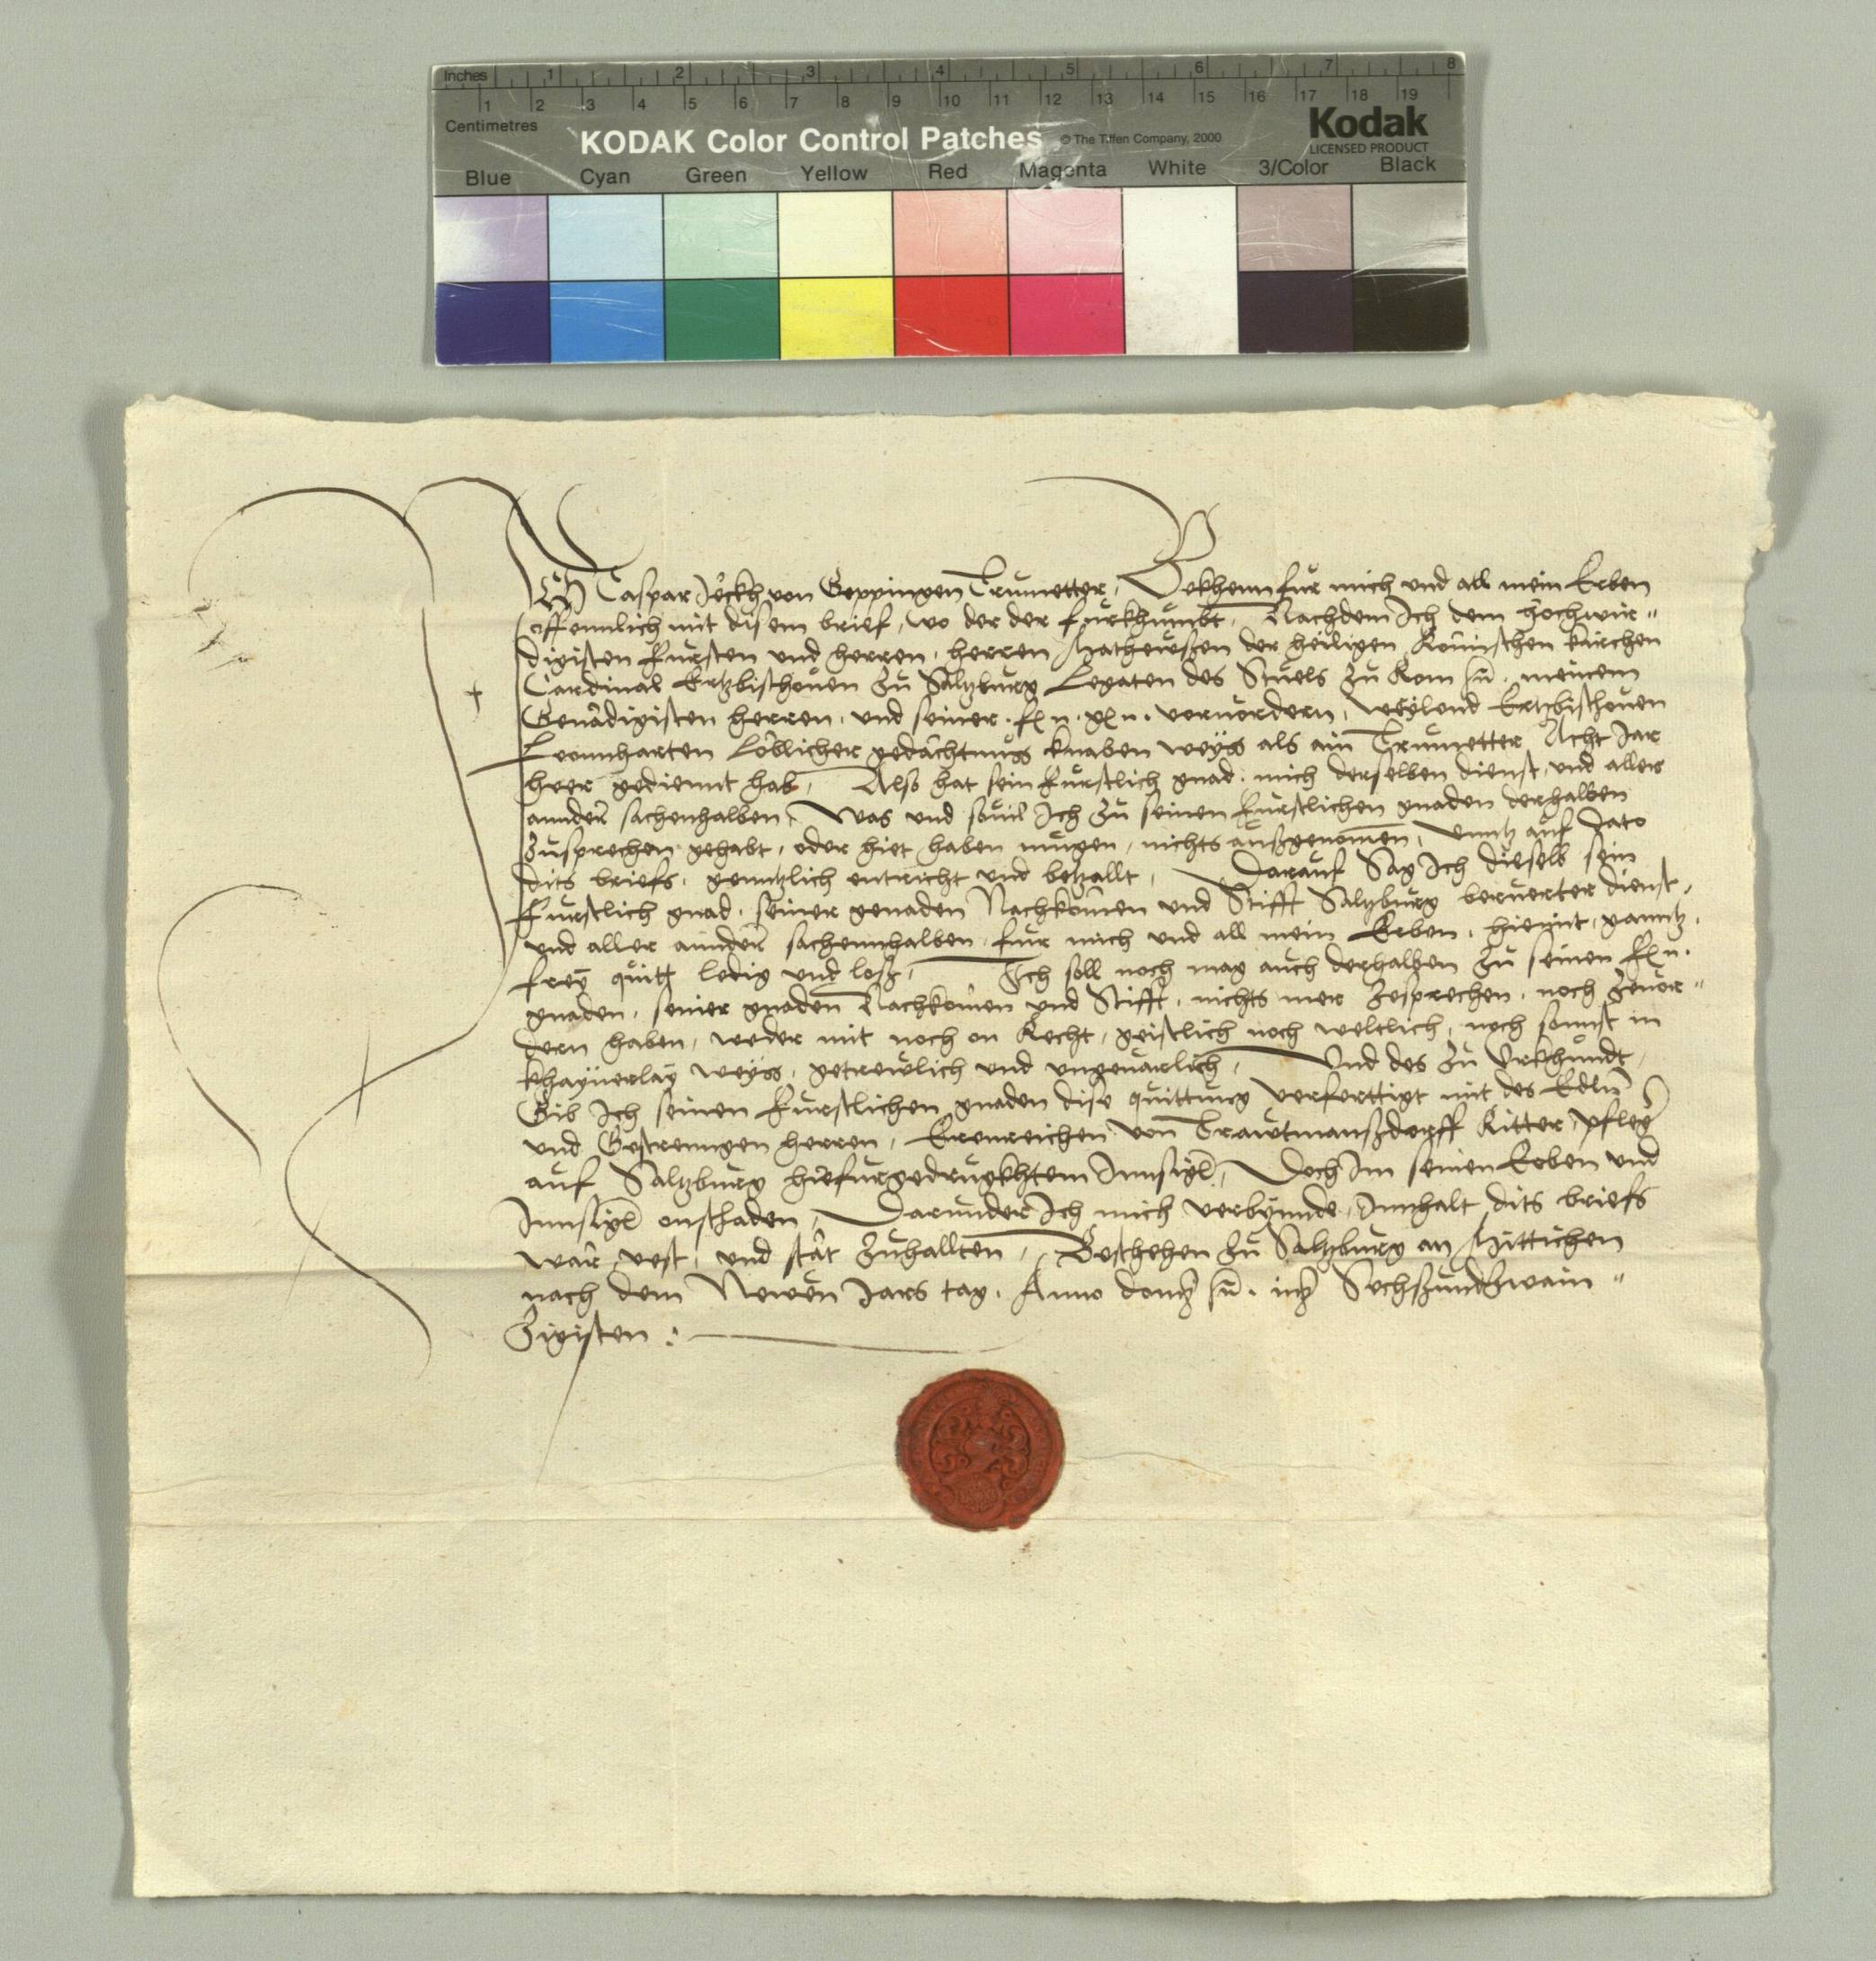 Inches 1 2 3 4 5 6 7 8
1 2 3 4 5 6 7 8 9 10 11 12 13 14 15 16 17 18 19
Centimetres
KODAK Color Control Patches © The Tiffen Company, 2000
Kodak
LICENSED PRODUCT
Blue Cyan Green Yellow Red Magenta White 3/Color Black
Ich Caspar Jöckh von Geppingen Trumetter, Bekhenn fur mich und all mein Erben
offennlich mit disem brief, wo der der furkhumbt, Nachdem Ich dem hochwir„
digisten fursten und herren, herren Matheußen der heiligen Römischen kirchen
Cardinal Ertzbischoven zu Saltzburg Legaten des Stuels zu Rom ⁊c. meinem
Genädigisten herren, und seiner f. g. vervordern, weylend Ertzbischoven
Leonnharten löblicher gedächtnuss knaben weyss als ain Trumetter Acht Jar
heer gediennt hab, Also hat sein furstlich gnad mich derselben dienst, und aller
annder sachenhalben, Was und sovil Ich zu seinen furstlichen gnaden derhalben
zusprechen gehabt, oder hiet haben mugen, nichts außgenomen, unntz auf Dato
dits briefs, genntzlich entricht und betzallt, Darauf Sag Ich dieselb sein
furstlich gnad, seiner genaden Nachkomen und Stifft Saltzburg beruerter dienst,
und aller annder sachennhalben, fur mich und all mein Erben, hiemit, ganntz,
frey quitt ledig und loß, Ich soll noch mag auch derhalben zu seinen f.
gnaden, seiner gnaden Nachkomen und Stifft, nichts mer zesprechen, noch zevor„
dern haben, weder mit noch on Recht, geistlich noch weltlich, noch sonnst in
khaynerlay weyss, getrewlich und ungevarlich, Und des zu Urkhundt,
Gib Ich seinen furstlichen gnaden dise quittung verferttigt mit des Edln
und Gestrenngen herren, Ernreichen von Trawtmanßdorff Ritter, pfleger
auf Saltzburg hiefurgedrugkhtem Innsigl, Doch Im seinen Erben und
Innsigl onschaden, Darunder Ich mich verbynnde, Innhalt dits briefs
war vest, und stät zuhallten, Geschehen zu Saltzburg an Mittichen
nach dem Newen Jars tag, Anno domini ⁊c. im Sechsundzwain„
zigisten :